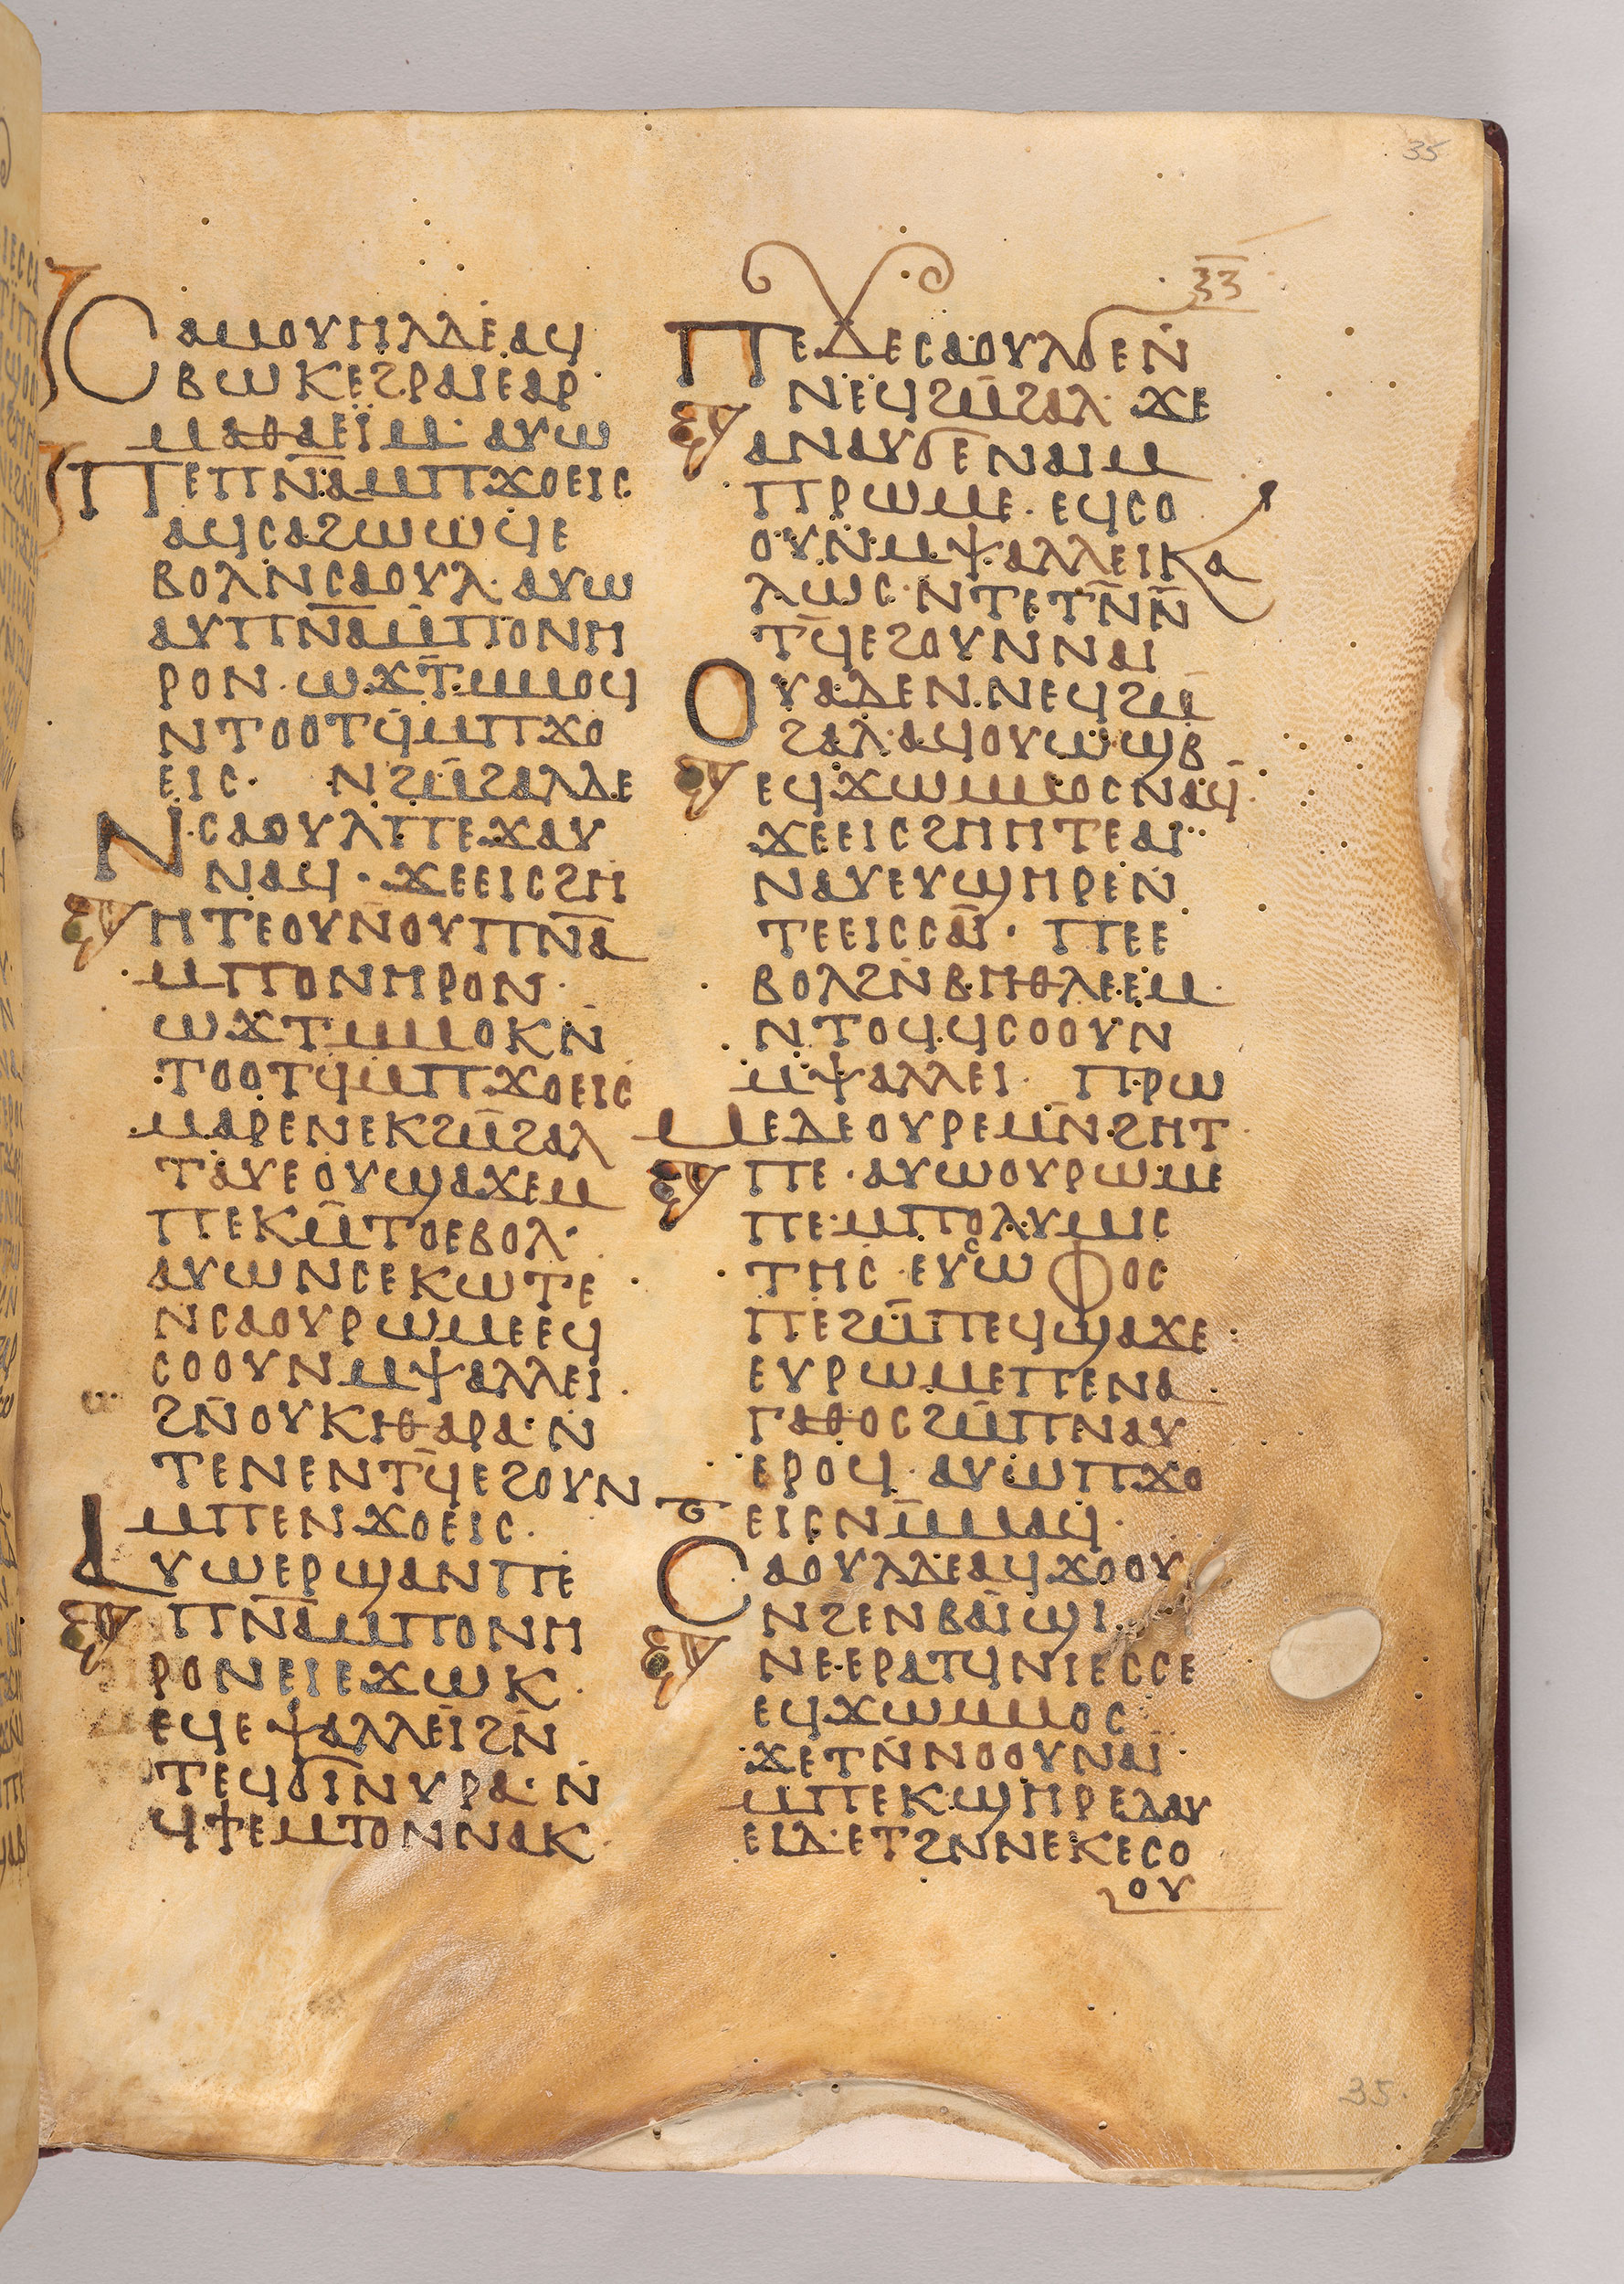 35
ⲝⲍ
ⲤⲀⲘⲞⲨⲎⲖⲆⲈⲀϤ
ⲂⲰⲔⲈϨⲢⲀⲒⲈⲀⲢ
ⲘⲀⲐⲀⲈⲒ̈Ⲙ· ⲀⲨⲰ
ⲠⲈⲠⲚ̅ⲀⲘⲠϪⲞⲈⲒⲤ
ⲀϤⲤⲀϨⲰⲰϤⲈ
ⲂⲞⲖⲚⲤⲀⲞⲨⲖ· ⲀⲨⲰ
ⲀⲨⲠⲚ̅ⲀⲘⲠⲞⲚⲎ
ⲢⲞⲚ· ⲰϪⲦ̅ⲘⲘⲞϤ
ⲚⲦⲞⲞⲦϤ̅ⲘⲠϪⲞ
ⲈⲒⲤ· ⲚϨⲘ̅ϨⲀⲖⲆⲈ
ⲚⲤⲀⲞⲨⲖⲠⲈϪⲀⲨ
ⲚⲀϤ· ϪⲈⲈⲒⲤϨⲎ
ⲎⲦⲈⲞⲨⲚ̅ⲞⲨⲠⲚ̅Ⲁ
ⲘⲠⲞⲚⲎⲢⲞⲚ·
ⲰϪⲦⲘⲘⲞⲔⲚ̅
ⲦⲞⲞⲦϤⲘⲠϪⲞⲈⲒⲤ
ⲘⲀⲢⲈⲚⲈⲔϨⲘ̅ϨⲀⲖ
ⲦⲀⲨⲈⲞⲨϢⲀϪⲈⲘ
ⲠⲈⲔⲘ̅ⲦⲞⲈⲂⲞⲖ·
ⲀⲨⲰⲚⲤⲈⲔⲰⲦⲈ
ⲚⲤⲀⲞⲨⲢⲰⲘⲈⲈϤ
ⲤⲞⲞⲨⲚⲘⲮⲀⲖⲖⲈⲒ
ϨⲚ̅ⲞⲨⲔⲒⲐⲀⲢⲀ·Ⲛ
ⲦⲈⲚⲈⲚⲦϤ̅ⲈϨⲞⲨⲚ
ⲘⲠⲈⲚϪⲞⲈⲒⲤ·
ⲀⲨⲰⲈⲢϢⲀⲚⲠⲈ
ⲠⲚ̅ⲀⲘⲠⲞⲚⲎ
ⲢⲞⲚⲈⲒⲈϪⲰⲔ·
ⲈϤⲈⲮⲀⲖⲖⲈⲒ̈ϨⲚ̅
ⲦⲈϤϬⲒⲚⲨⲢⲀ·Ⲛ̅
ϤϮⲈⲘⲦⲞⲚⲚⲀⲔ
ⲠⲈϪⲈⲤⲀⲞⲨⲖϬⲈⲚ̅
ⲚⲈϤϨⲘ̅ϨⲀⲖ· ϪⲈ
ⲀⲚⲀⲨϬⲈⲚⲀⲒⲘ
ⲠⲢⲰⲘⲈ· ⲈϤⲤⲞ
ⲞⲨⲚⲘⲮⲀⲖⲖⲈⲒⲔⲀ
ⲖⲰⲤ·ⲚⲦⲈⲦⲚ̅Ⲛ̅
ⲦϤ̅ⲈϨⲞⲨⲚⲚⲀⲒ
ⲞⲨⲀⲆⲈⲚ·ⲚⲈϤϨⲘ̅
ϨⲀⲖ·ⲀϤⲞⲨⲰϢⲂ
ⲈϤϪⲰⲘⲘⲞⲤⲚⲀϤ·
ϪⲈⲈⲒⲤϨⲎⲎⲦⲈⲀⲒ
ⲚⲀⲨⲈⲨϢⲎⲢⲈⲚ̅
ⲦⲈⲈⲒⲤⲤⲀⲒ̈· ⲠⲈⲈ
ⲂⲞⲖϨⲚ̅ⲂⲎⲐⲖⲈⲈⲘ·
ⲚⲦⲞϤϤⲤⲞⲞⲨⲚ
ⲘⲮⲀⲖⲖⲈⲒ· ⲠⲢⲰ
ⲘⲈⲆⲈⲞⲨⲢⲈⲘⲚ̅ϨⲎⲦ
ⲠⲈ·ⲀⲨⲰⲞⲨⲢⲰⲘⲈ
ⲠⲈ·ⲘⲠⲞⲖⲨⲘⲒⲤ
ⲦⲎⲤ·ⲈⲨⲤⲰⲪⲞⲤ
ⲠⲈϨⲘ̅ⲠⲈϤϢⲀϪⲈ·
ⲈⲨⲢⲰⲘⲈⲠⲈⲚⲀ
ⲄⲀⲐⲞⲤϨⲘ̅ⲠⲚⲀⲨ
ⲈⲢⲞϤ·ⲀⲨⲰⲠϪⲞ
ⲈⲒⲤⲚⲘ̅ⲘⲀϤ·
ⲤⲀⲞⲨⲖⲆⲈⲀϤϪⲞⲞⲨ
ⲚϨⲈⲚⲂⲀⲒ̈ϢⲒ
ⲚⲈ·ⲈⲢⲀⲦϤⲚⲒⲈⲤⲤⲈ
ⲈϤϪⲰⲘⲘⲞⲤ
ϪⲈⲦⲚ̅ⲚⲞⲞⲨⲚⲀⲒ̈
ⲘⲠⲈⲔϢⲎⲢⲈⲆⲀⲨ
ⲈⲒⲆ·ⲈⲦϨⲚⲚⲈⲔⲈⲤⲞ
ⲞⲨ
35.